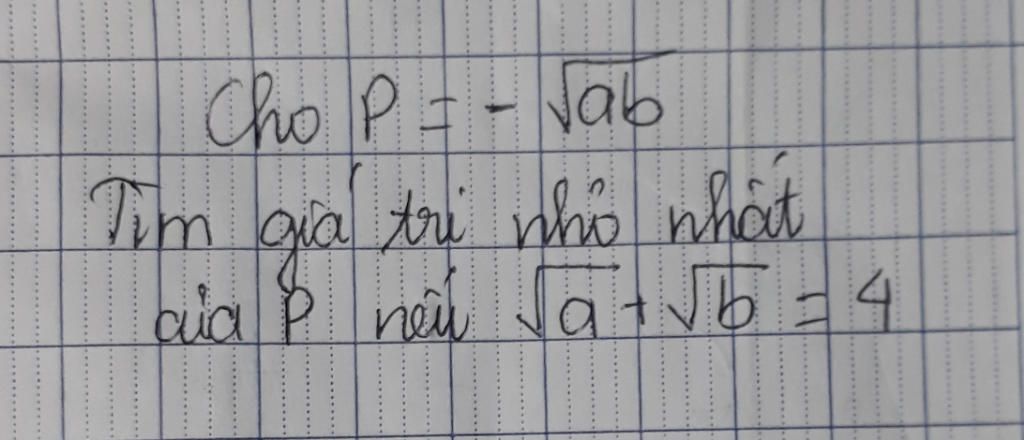 Cho P = - √ab
Tìm giá trị nhỏ nhất
của P nếu √a + √b = 4